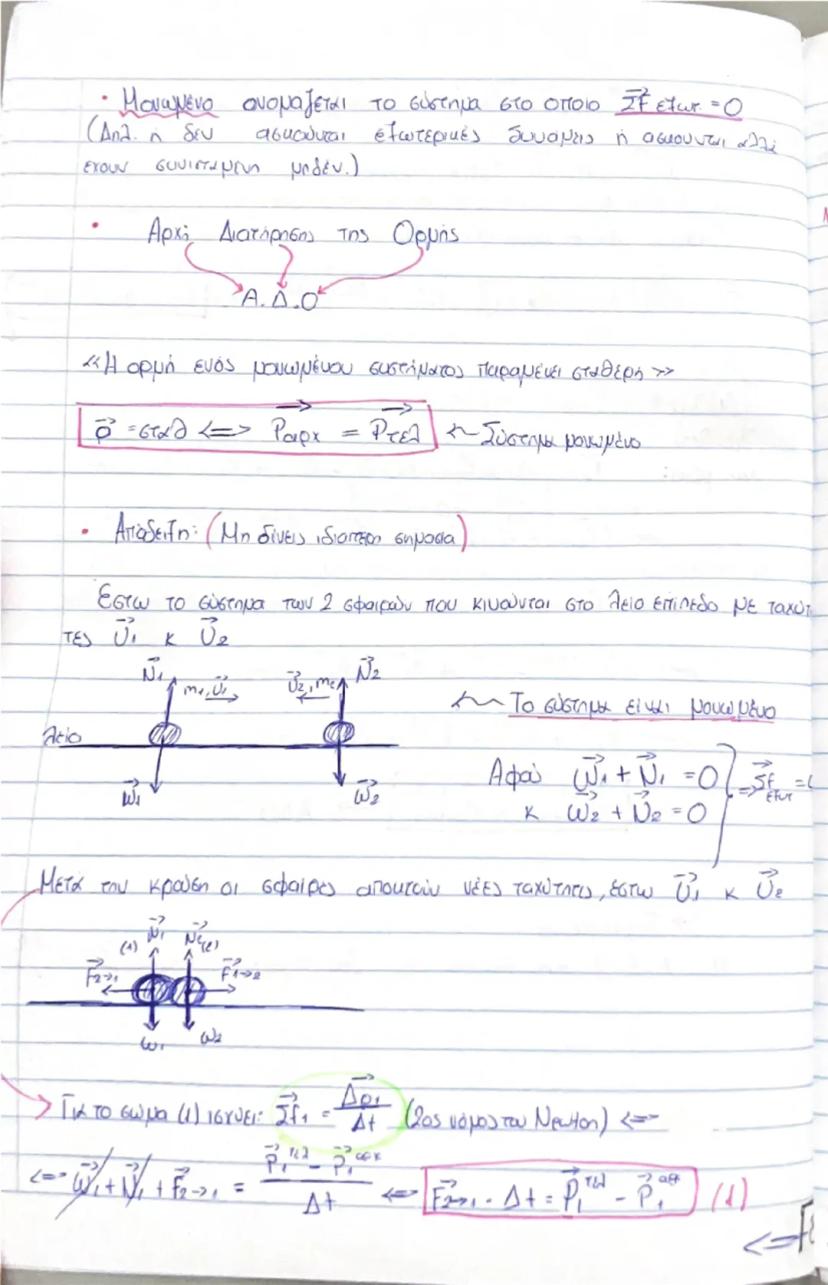 • Μονωμένο ονομάζεται το σύστημα στο οποίο Σf εξωτ. = 0
(Δηλ. ή δεν ασκούνται εξωτερικές δυνάμεις ή ασκούνται αλλά
έχουν συνισταμένη μηδέν.)
• Αρχή Διατήρησης της Ορμής
Α.Δ.Ο
«Η ορμή ενός μονωμένου συστήματος παραμένει σταθερή»
p⃗ = σταθ <=> P⃗αρχ = P⃗τελ Σύστημα μονωμένο
• Απόδειξη: (Μη δίνεις ιδιαίτερη σημασία)
Έστω το σύστημα των 2 σφαιρών που κινούνται στο λείο επίπεδο με ταχύτ
τες U⃗1 κ U⃗2
N⃗1 m1, U⃗1 U⃗2, m2 N⃗2
Το σύστημα είναι μονωμένο
λείο
Αφού W⃗1 + N⃗1 = 0
κ W⃗2 + N⃗2 = 0 => Σf⃗ εξωτ =
W⃗1 W⃗2
Μετά την κρούση οι σφαίρες αποκτούν νέες ταχύτητες, έστω U⃗1 κ U⃗2
(1) N⃗1 N⃗2 (2)
F⃗2→1 F⃗1→2
W1 W2
Για το σώμα (1) ισχύει: Σf⃗1 = Δp⃗1/Δt (2ος νόμος του Newton) <=>
<=> W⃗1 + N⃗1 + F⃗2→1 = (P⃗1τελ - P⃗1αρχ)/Δt <=> F⃗2→1 · Δt = P⃗1τελ - P⃗1αρχ (1)
<=